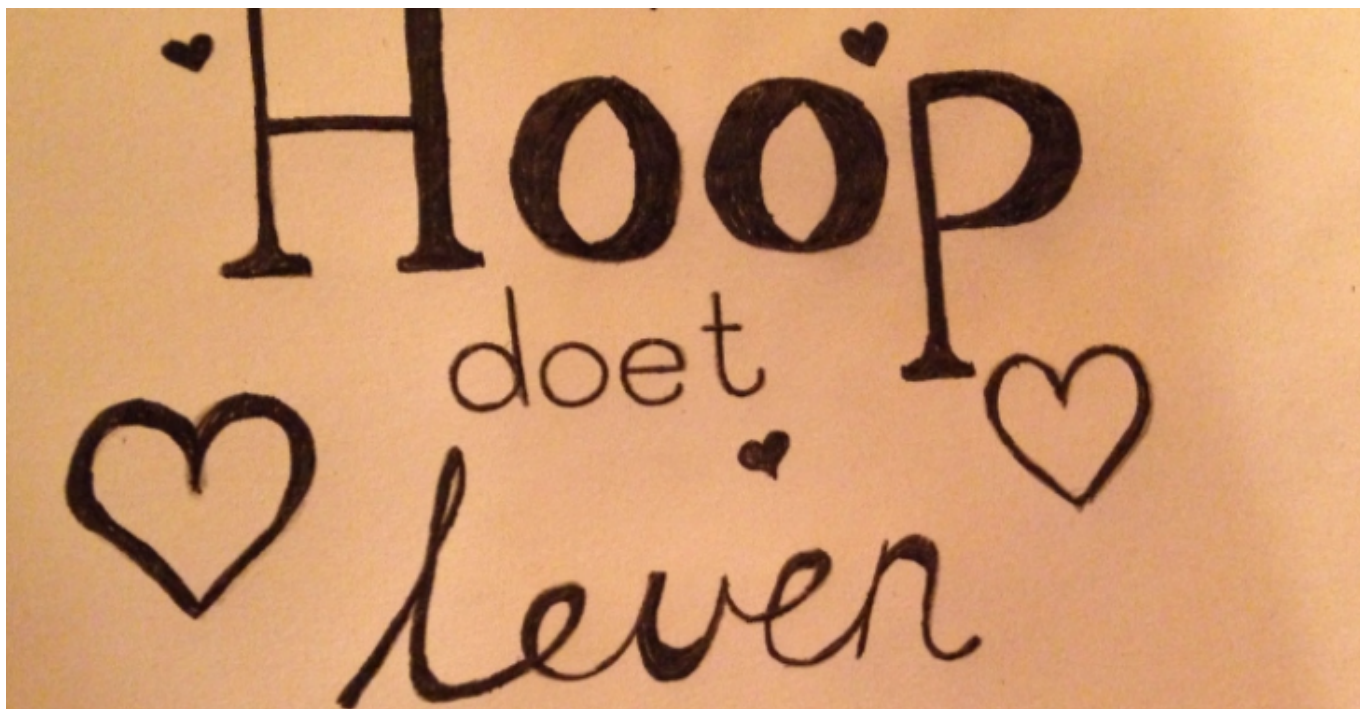 Hoop
doet
leven